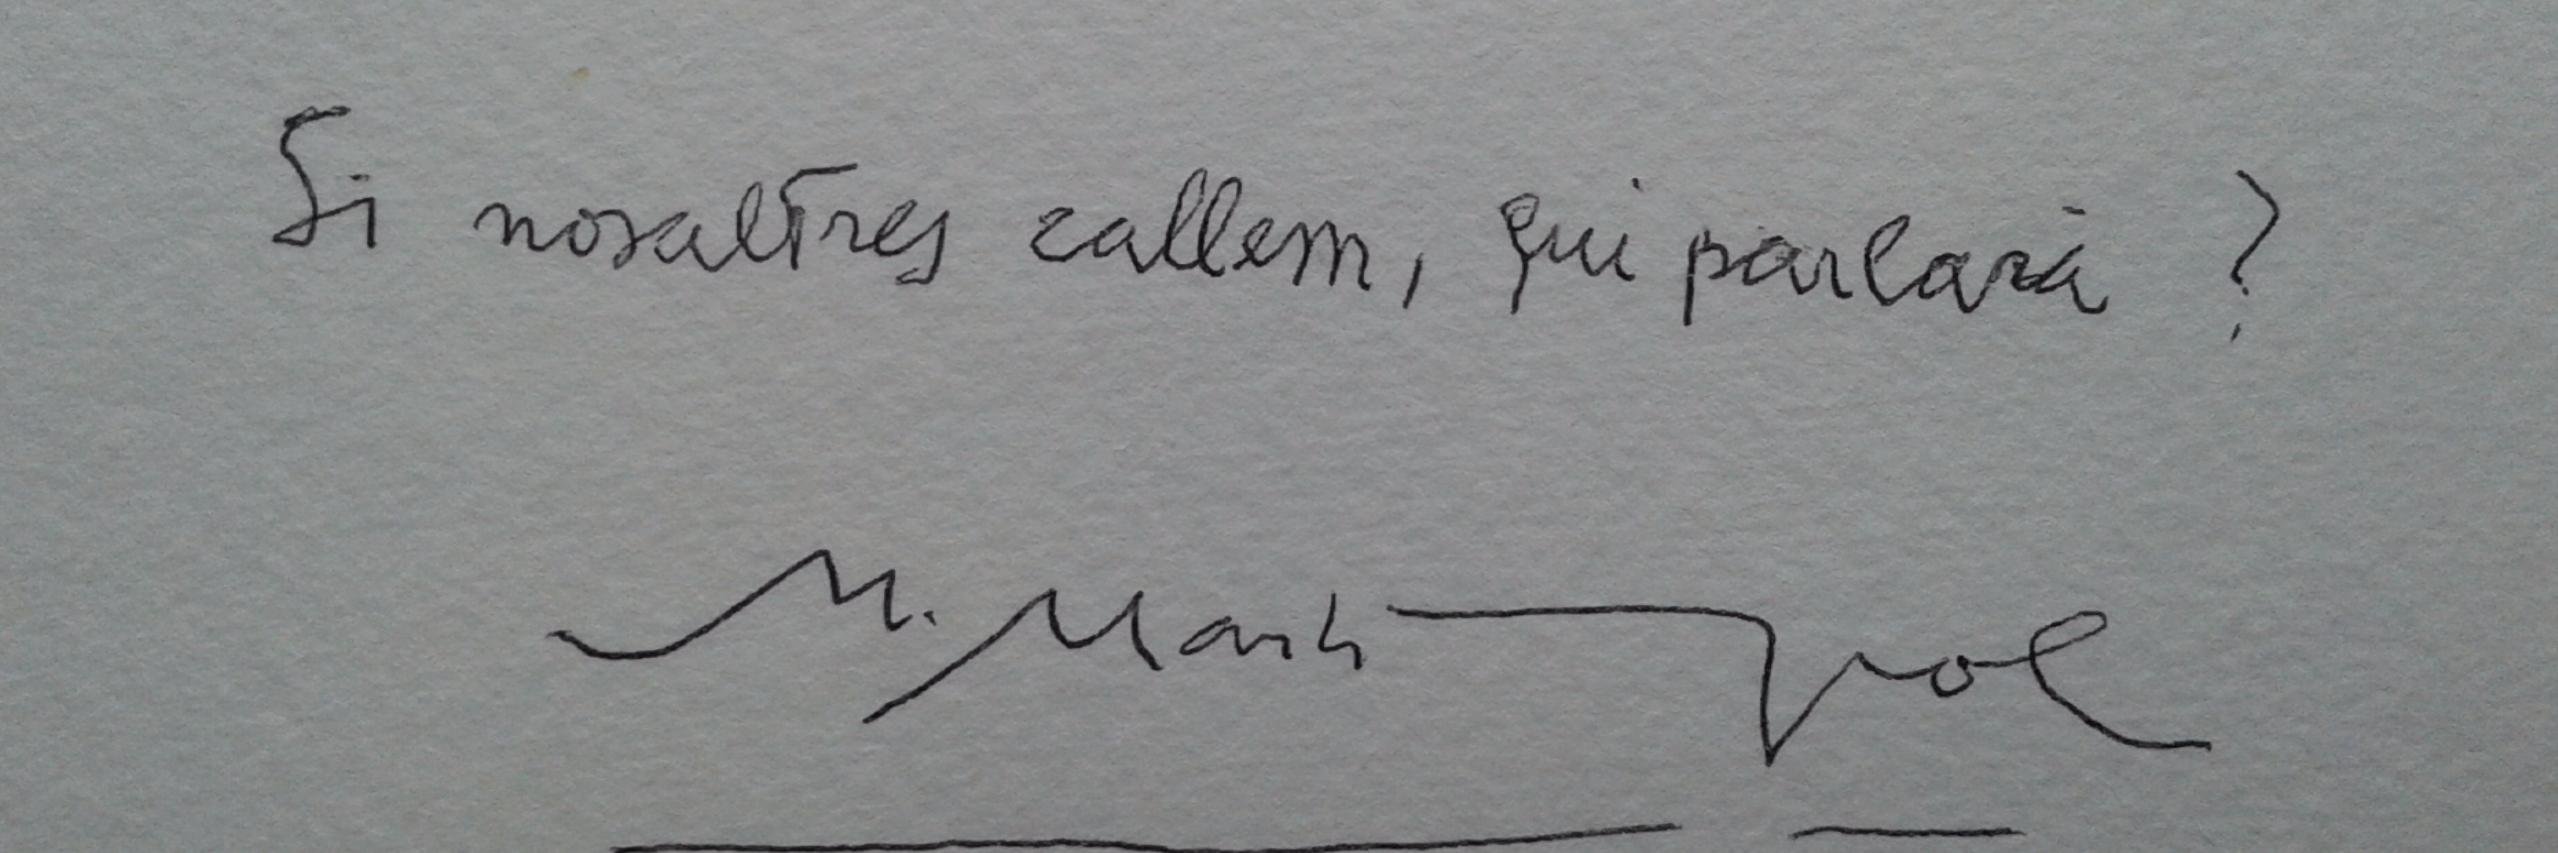 Si nosaltres callem, qui parlarà?
M. Martí Pol